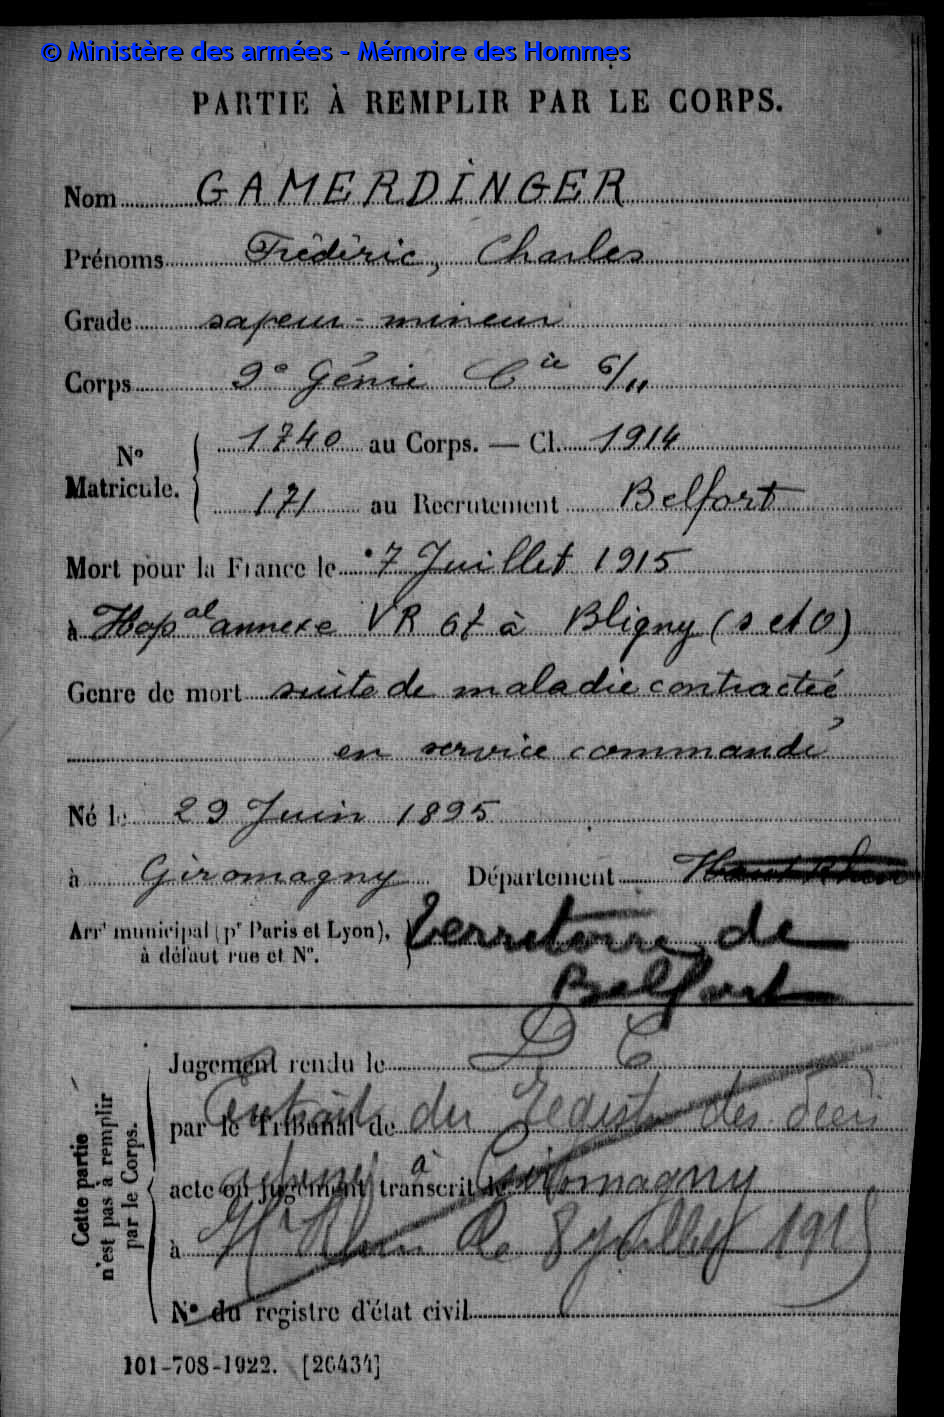 © Ministère des armées - Mémoire des Hommes
PARTIE À REMPLIR PAR LE CORPS.
Nom GAMERDINGER
Prénoms Frédéric, Charles
Grade sapeur-mineur
Corps 9e Génie Cie 6/11
No Matricule. 1740 au Corps. — Cl. 1914
171 au Recrutement Belfort
Mort pour la France le 7 Juillet 1915
à Hopal annexe VR 67 à Bligny (S et O)
Genre de mort suite de maladie contractée
en service commandé
Né le 29 Juin 1895
à Giromagny Département Haut Rhin
Arrt municipal (pr Paris et Lyon), à défaut rue et No.
Territoire de
Belfort
Cette partie n'est pas à remplir par le Corps.
Jugement rendu le D C
par le Tribunal de Extrait du Registre des décès
acte ou jugement transcrit le à Giromagny
à Ht Rhin le 8 juillet 1915
No du registre d'état civil
101-708-1922. [26434]